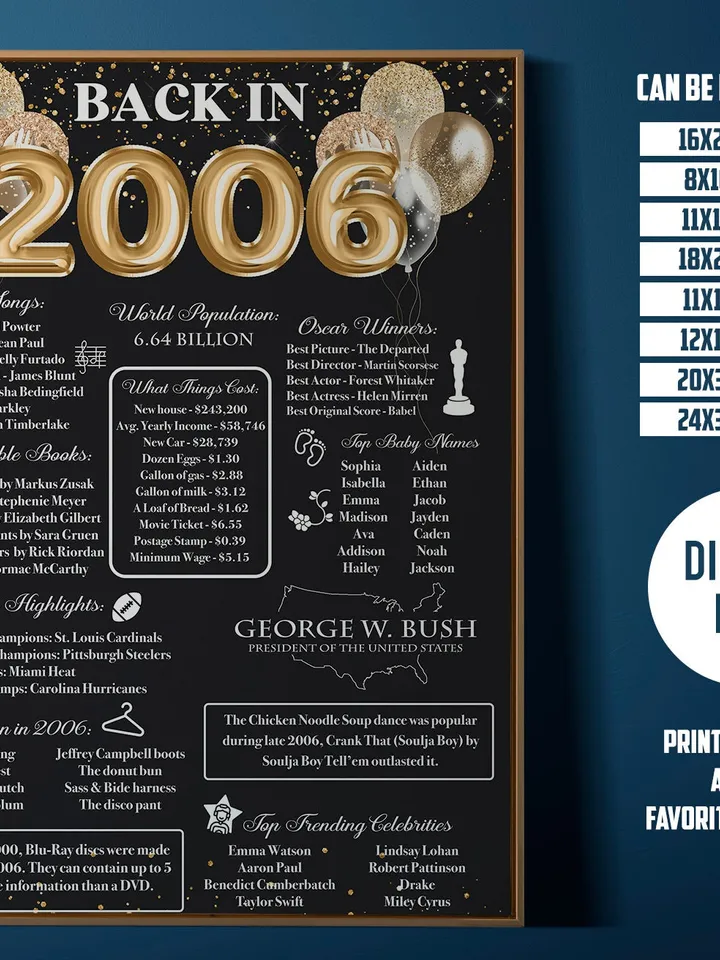 BACK IN
2006
ongs:
Powter
ean Paul
elly Furtado
- James Blunt
sha Bedingfield
arkley
n Timberlake
ble Books:
by Markus Zusak
tephenie Meyer
Elizabeth Gilbert
nts by Sara Gruen
rs by Rick Riordan
ormac McCarthy
World Population:
6.64 BILLION
What Things Cost:
New house - $243,200
Avg. Yearly Income - $58,746
New Car - $28,739
Dozen Eggs - $1.30
Gallon of gas - $2.88
Gallon of milk - $3.12
A Loaf of Bread - $1.62
Movie Ticket - $6.55
Postage Stamp - $0.39
Minimum Wage - $5.15
Oscar Winners:
Best Picture - The Departed
Best Director - Martin Scorsese
Best Actor - Forest Whitaker
Best Actress - Helen Mirren
Best Original Score - Babel
Top Baby Names
Sophia Aiden
Isabella Ethan
Emma Jacob
Madison Jayden
Ava Caden
Addison Noah
Hailey Jackson
Highlights:
ampions: St. Louis Cardinals
hampions: Pittsburgh Steelers
s: Miami Heat
mps: Carolina Hurricanes
GEORGE W. BUSH
PRESIDENT OF THE UNITED STATES
n in 2006:
ng Jeffrey Campbell boots
est The donut bun
utch Sass & Bide harness
olum The disco pant
The Chicken Noodle Soup dance was popular
during late 2006, Crank That (Soulja Boy) by
Soulja Boy Tell'em outlasted it.
000, Blu-Ray discs were made
006. They can contain up to 5
e information than a DVD.
Top Trending Celebrities
Emma Watson Lindsay Lohan
Aaron Paul Robert Pattinson
Benedict Cumberbatch Drake
Taylor Swift Miley Cyrus
CAN BE
16X2
8X1
11X1
18X2
11X1
12X1
20X3
24X3
DI
PRINT
A
FAVORIT